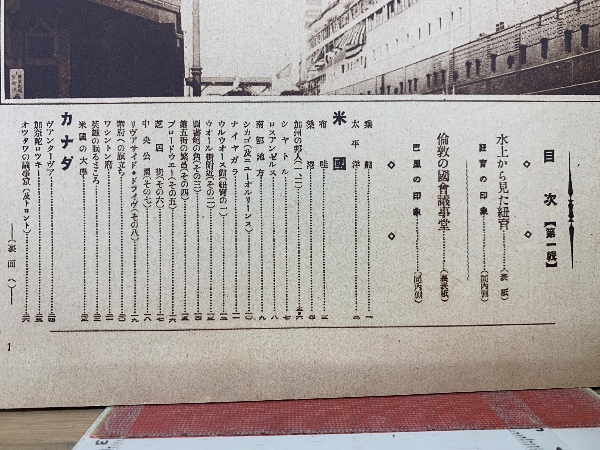 目次【第一輯】
水上から見た紐育……（表紙）
紐育の印象……（同内側）
倫敦の國會議事堂……（裏表紙）
巴里の印象……（同内側）
乘船……一
太平洋……二
米國
布哇……三
桑港……四
加州の邦人（一、二）……五・六
シヤトル……七
ロスアンゼルス……八
南部地方……九
シカゴ（及ニューオルリーンス）……一〇
ナイヤガラ……一一
ウルウオース館（紐育の一）……一二
ウオール街附近（その二）……一三
（その三）……一四
第五街の繁昌（その四）……一五
ブロードウエー（その五）……一六
芝居街（その六）……一七
中央公園（その七）……一八
リヴアサイド・ドライヴ（その八）……一九
華府への旅立ち……二〇
ワシントン府……二一
英雄の眠るところ……二二
米國の大學……二三
カナダ
ヴアンクーヴア……二四
加奈陀ロツキー……二五
オツタワの議事堂（及トロント）……二六
——（裏面へ）——
1